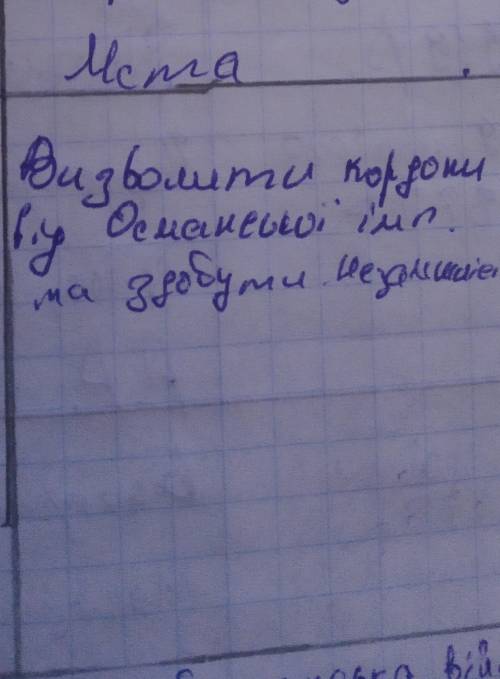 Мета
Визволити кордони
від Османської імп.
та здобути незалежність
вій